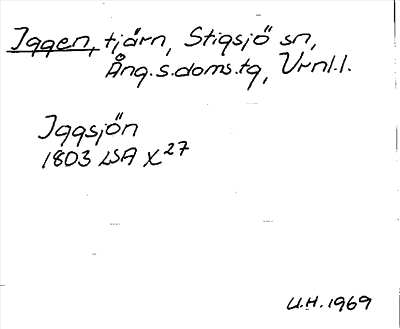 Iggen, tjärn, Stigsjö sn,
Ång.s.doms.tg, Vrnl.l.
Iggsjön
1803 LSA X27
U.H. 1969